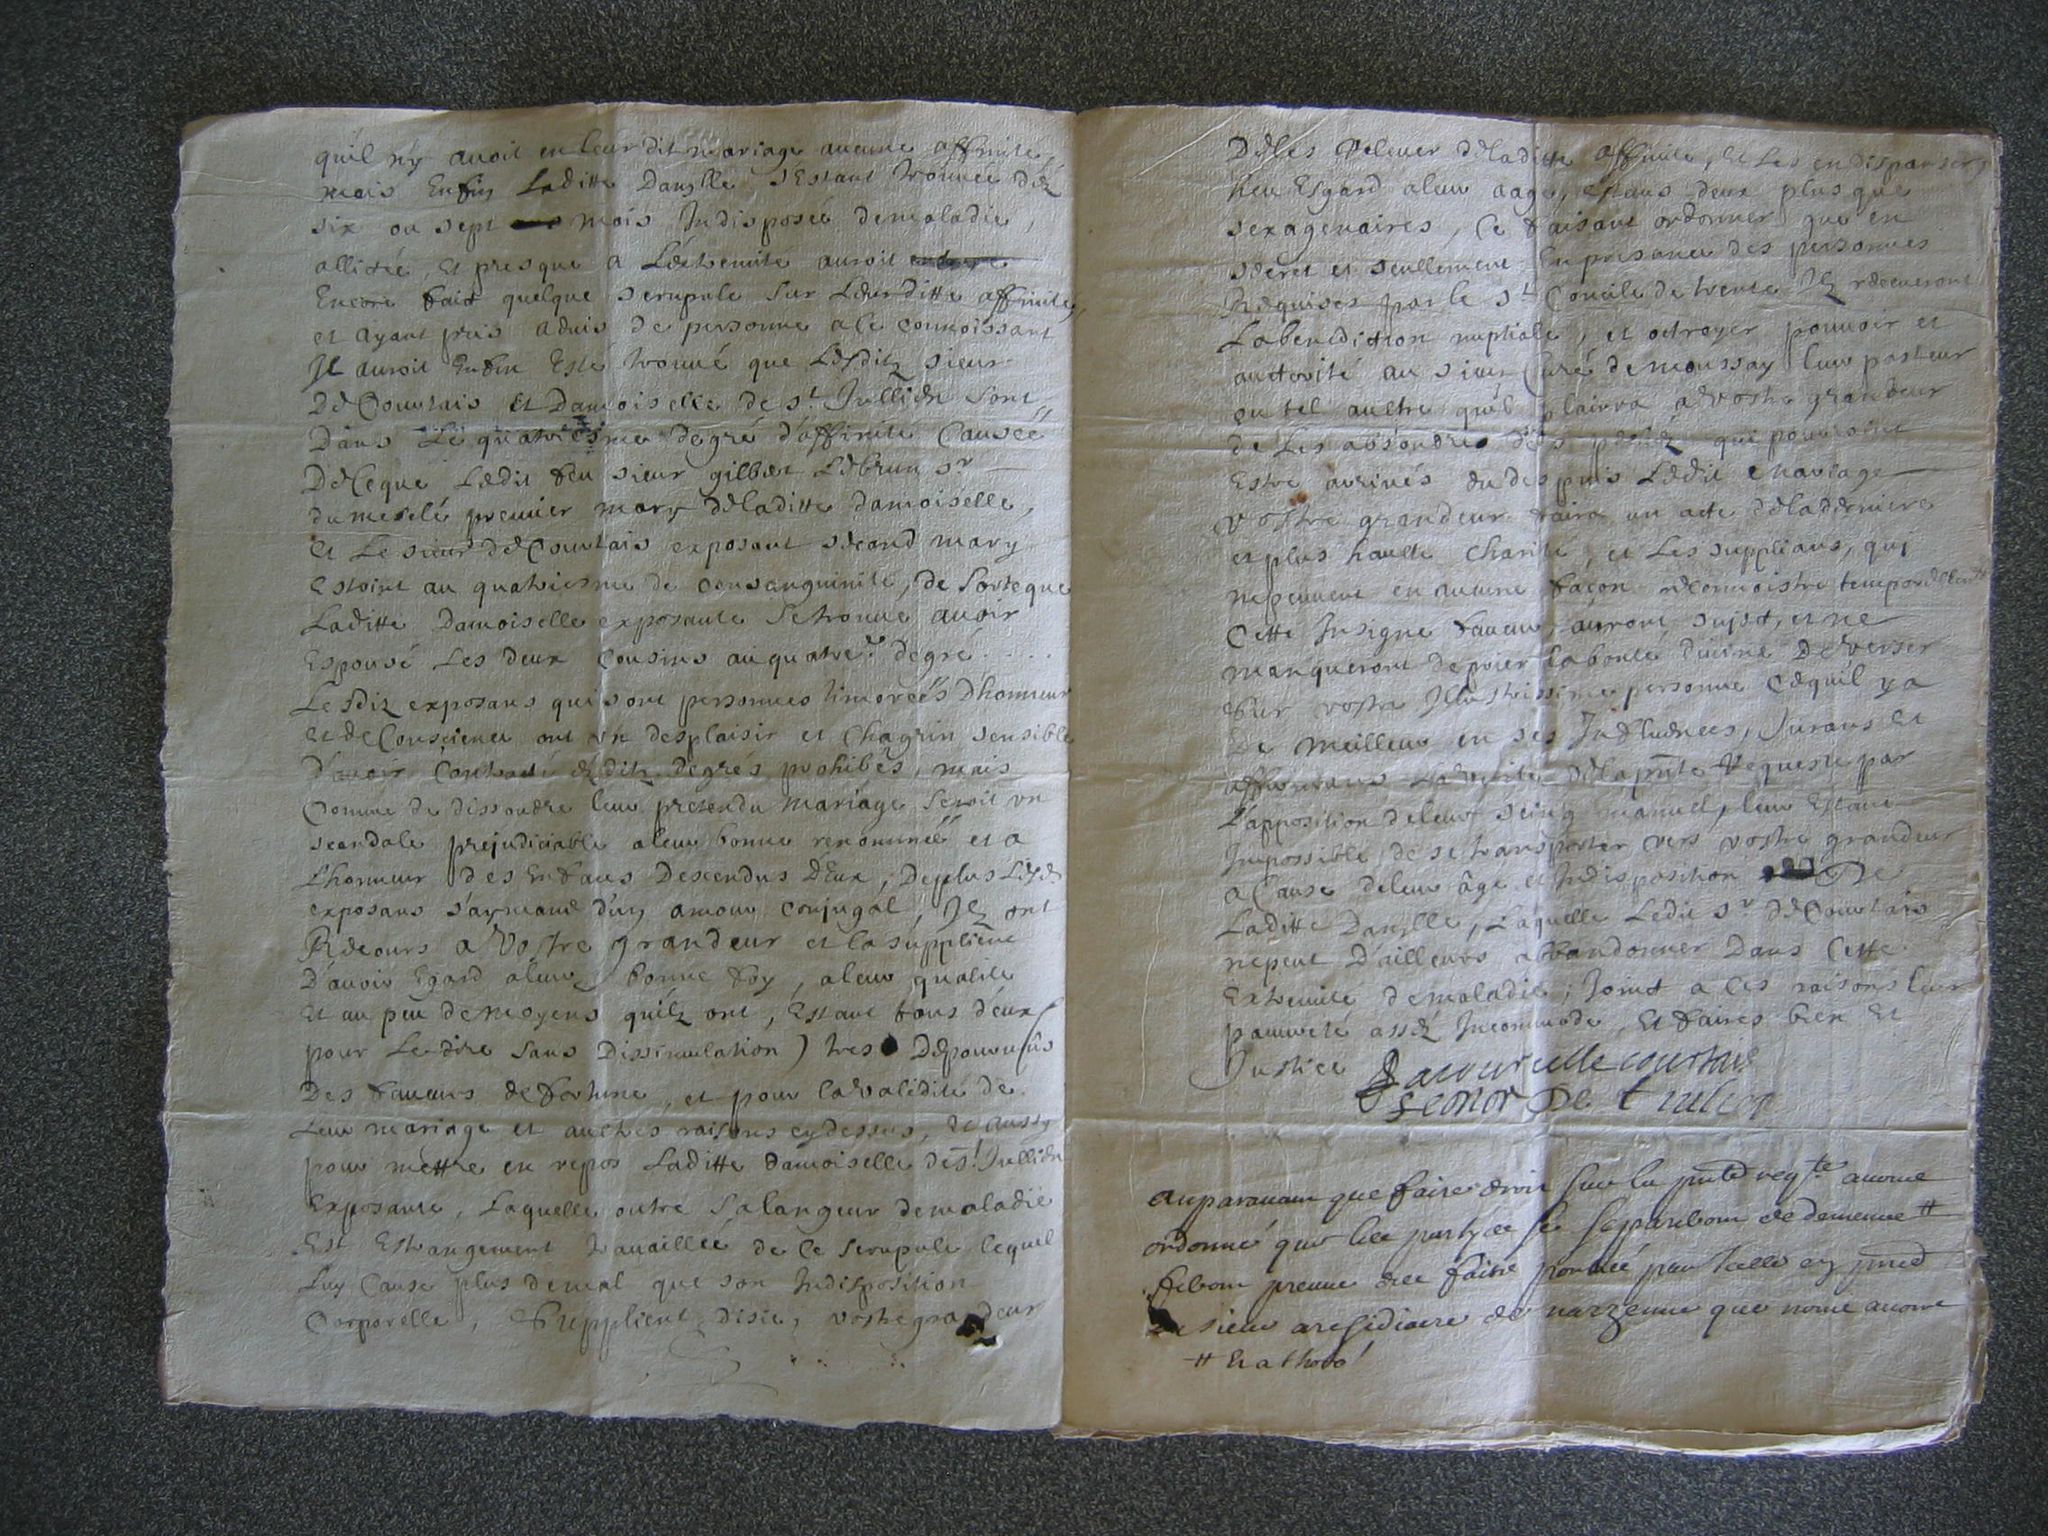 quil n'y auoit en leur dit mariage aucune affinité,
mais Enfin Laditte Damlle s'Estant trouuée dez
six ou sept mois Indisposée de maladie,
allitée, Et presque a L'extremité auroit
Encore fait quelque scrupule sur Leur ditte affinité,
et ayant pris aduis de personne a ce connoissant
Il auroit Enfin Esté trouué que Lesditz sieur
De Courtais Et Damoiselle de St. Jullien sont
Dans Le quatriesme degré d'affinité Causéé
De Ceque Ledit feu sieur gilbert Lebrun sr
du meslé premier mary de laditte damoiselle,
Et Le sieur de Courtais exposant second mary
Estoint au quatriesme de consanguinité, de Sorteque
Laditte Damoiselle exposante Se trouue auoir
Espousé Les deux Cousins au quatre.e degré . . . .
Lesditz exposans qui sont personnes timoréés Dhonneur
et de Conscience ont vn desplaisir et Chagrin sensible
D'auoir Contracté esditz degrés prohibés, mais
Comme de dissoudre leur pretendu mariage Seroit vn
scandale prejudiciable a leur bonne renomméé et a
L'honneur des Enfans Descendus d'Eux, De plus Lesd.
exposans s'aymans d'un amour conjugal, Ilz ont
Recours a Vostre grandeur et la supplient
D'auoir Egard a leur bonne foy, a leur qualité
Et au peu de moyens quilz ont, Estant tous deux (
pour Le dire Sans Dissimulation) tres Depourueûs
Des faueurs de fortune, et pour la validité de
Leur mariage et aultres raisons cydessus, et aussy
pour mettre en repos Laditte damoiselle de St. Jullien
Exposante, Laquelle outre Sa langeur de maladie
Est Estrangement trauaillée de Ce scrupule lequel
Luy Cause plus de mal que son Indisposition
Corporelle, Supplient disie, vostre grandeur
De Les Releuer de laditte affinité, et Les en dispanser,
heu Esgard a leur aage, estans deux plus que
sexagenaires, Ce faisant ordonner que en
secret et seullement En presance des personnes
Requises par le St Concile de trente Ilz receuront
La benediction nuptiale, et octroyer pouuoir et
auctorité au sieur Curé de moussay leur pasteur
ou tel aultre quil plairra a vostre grandeur
de Les absoudre des pechéz qui pourroint
Estre arriués du despuis Ledit mariage
Vostre grandeur faira un acte de la derniere
et plus haulte charité, et Les supplians, qui
ne peuuent en aucune façon reconnoistre
Cette Insigne faueur, auront sujet, et ne
manqueront de prier la bonté diuine De Verser
Sur vostre Illustrissime personne Cequil y a
De meilleur en ses Influences, Jurans et
affirmans La verité de la pnte Requeste par
L'apposition de leur seing manuel, leur Estant
Impossible de se transporter vers vostre grandeur
a Cause de leur âge et Indisposition De
Laditte Damlle, Laquelle Ledit sr de Courtais
ne peut D'ailleurs abbandonner Dans Cette
Extremité de maladie; Joint a Ces raisons leur
pauureté asséz Incommode, Et faires bien Et
Justice Lacourcelle courtais
Leonor De t Julien
auparauant que faire droit sur la pnte reqte auons
ordonné que les partyes se separeront de demeure #
feront preuue des faits par Icelle
sieur de que nous auons